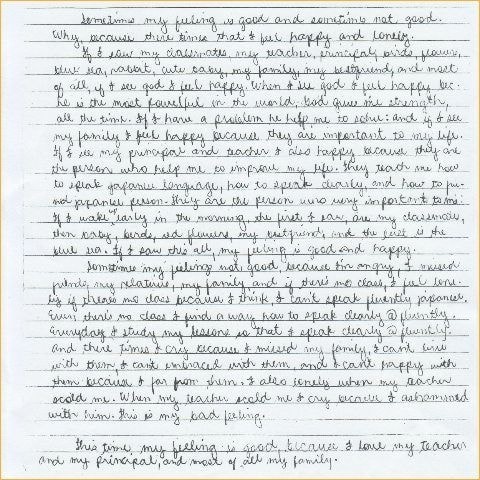 Sometimes my feeling is good and sometimes not, good.
Why, because there times that I feel happy and lonely.
If I saw my classmates, my teacher, principal, birds, flowers,
blue sea, rabbit, cute baby, my family, my bestfriend, and most
of all, if I see god I feel happy. When I see god I feel happy bec.
he is the most powerful in the world, God give me strength,
all the time. If I have a problem he help me to solve: and if I see
my family I feel happy because they are important to my life.
If I see my principal and teacher I also happy because they are
the person who help me to improve my life. They teach me how
to speak japanese language, how to speak clearly, and how to
japanese person. They are the person who very important to me.
If I wake up early in the morning, the first I saw, are my classmate,
then baby, birds, flowers, my bestfriend, and the last is the
blue sea. If I saw this all, my feeling is good and happy.
Sometimes my feelings not, good, because I'm angry, I missed
friends, my relative, my family, and if there's no class, I feel lone-
ly if there's no class because I think I can't speak fluently japanese.
Even there's no class I find a way how to speak clearly @ fluently.
Everyday I study my lessons so that I speak clearly @ fluently.
And there times I cry because I missed my family, I cant live
with them, I cant embraced with them, and I cant happy with
them because I far from them. I also lonely when my teacher
scold me. When my teacher scold me I cry because I ashammed
with him. This is my bad feeling.
This time my feeling is good, because I love my teacher
and my principal, and most of all my family.